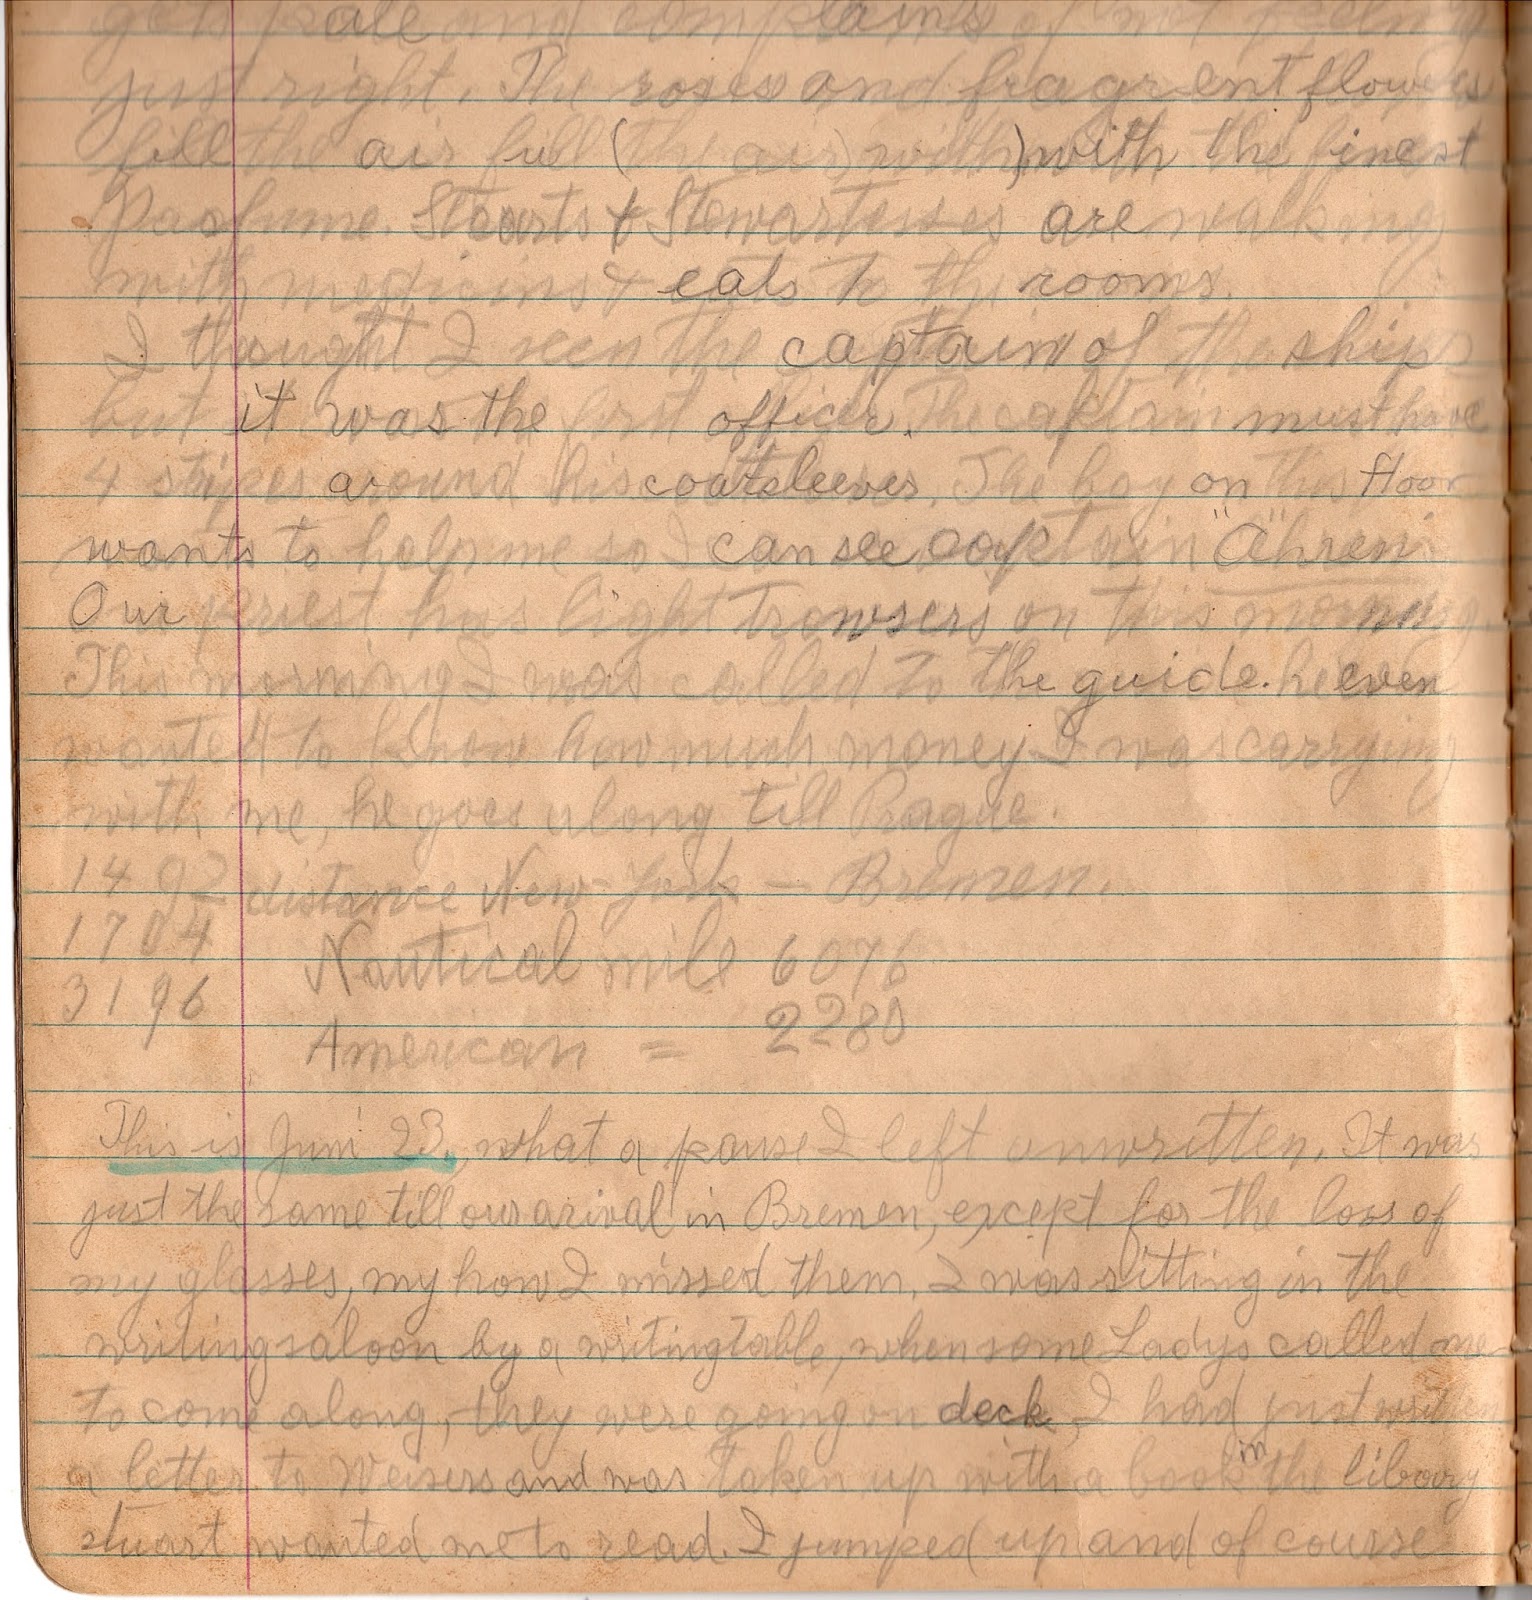 gets pale and complains of not feeling
just right. The roses and fragrent flowers
fill the air full (the air) with) with the finest
Parfume. Stuarts & Stewartesses are walking
with medicins & eats to the rooms.
I thought I seen the captain of the ship
but it was the first officer. The captain must have
4 stripes around his coatsleeves. The boy on this floor
wants to help me so I can see captain "Ahren"
Our priest has light trowsers on this morning.
This morning I was called to the guide. he even
wanted to know how much money I was carrying
with me, he goes along till Prague.
1492 distance New-York — Bremen.
1704 Nautical mile 6076
3196
American = 2280
This is Juni 23. what a pause I left unwritten. It was
just the same till our arival in Bremen, except for the loss of
my glasses, my how I missed them. I was sitting in the
writingsaloon by a writingtable, when some Ladys called me
to come along, they were going on deck, I had just written
a letter to Weisers and was taken up with a book in the libary
stuart wanted me to read. I jumped up and of course